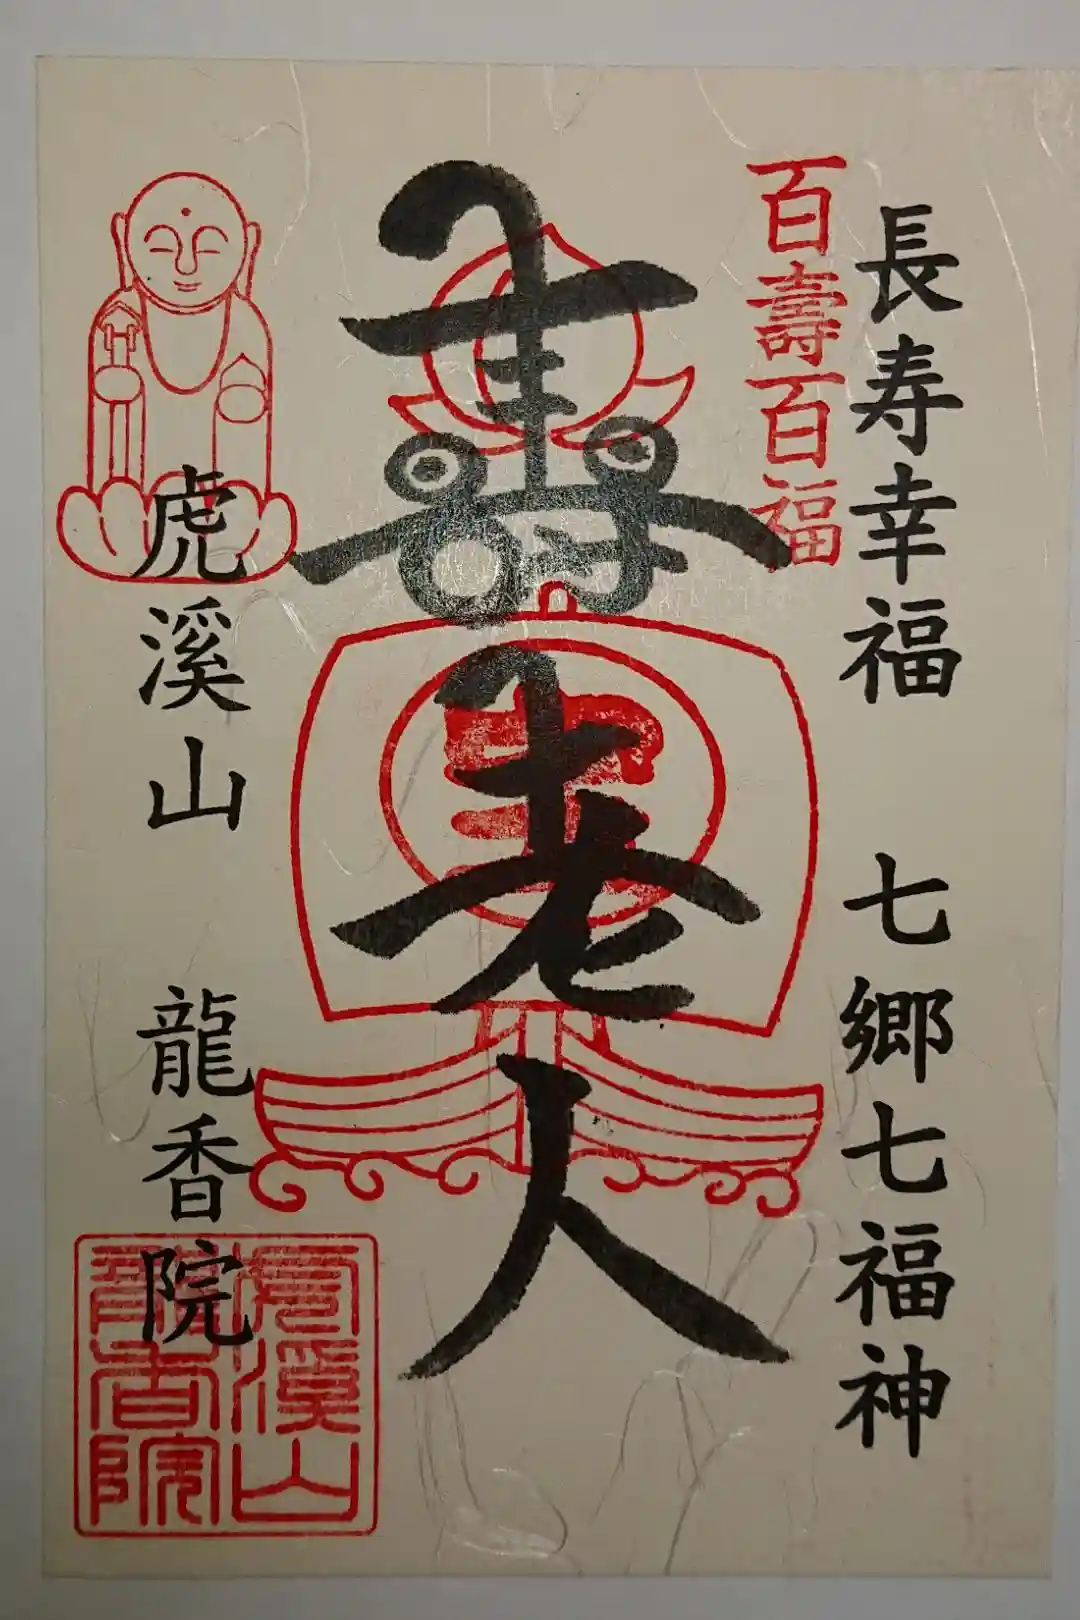 長寿幸福 七郷七福神
百壽百福
壽老人
寳
虎溪山 龍香院
虎溪山
龍香院